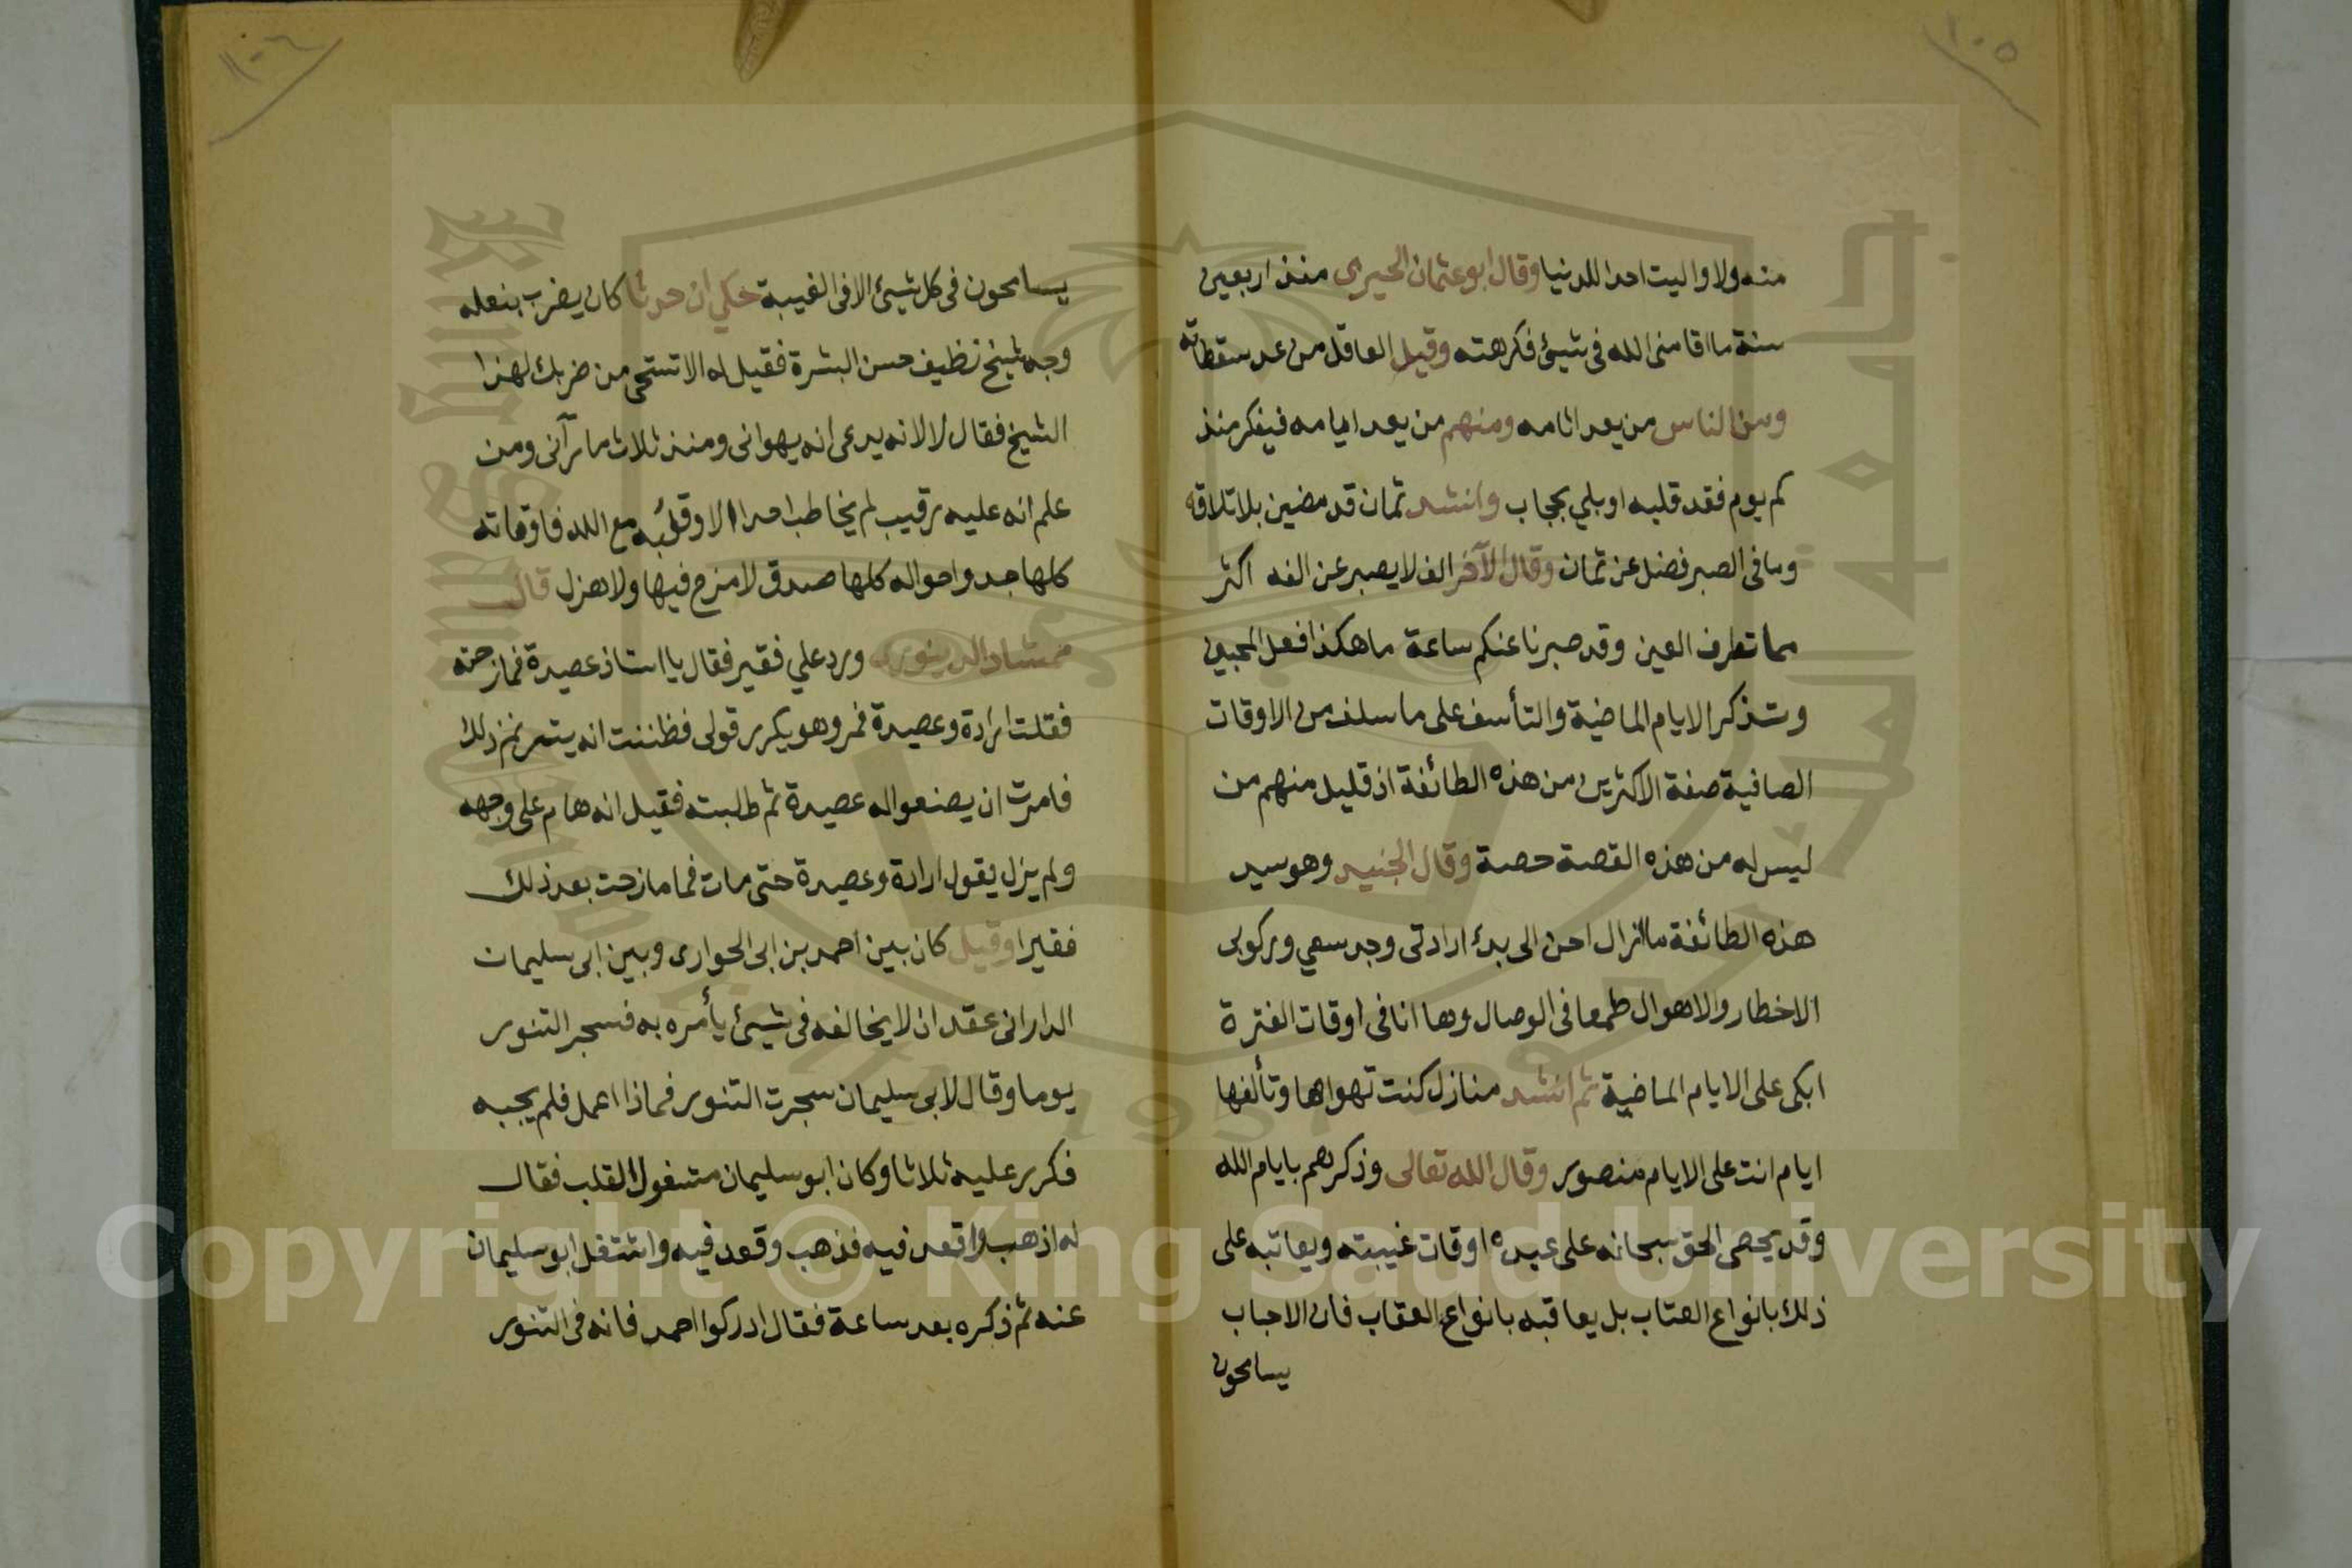 ١٠٥
منه ولا واليت احدا للدنيا وقال ابو عثمان الحيري منذ اربعين
سنة ما اقامنى الله فى شيئ فكرهته وقيل العاقل من عد سقطاته
ومن الناس من يعد اثامه ومنهم من يعد ايامه فيفكر منذ
كم يوم فقد قلبه او بلي بحجاب وانشد ثمان قد مضين بلا تلاقه
وما فى الصبر فضل عن ثمان وقال الآخر الف لا يصبر عن الفه اكثر
مما تطرف العين وقد صبرنا عنكم ساعة ما هكذا فعل المحبين
وتذكر الايام الماضية والتأسف على ما سلف من الاوقات
الصافية صفة الاكثرين من هذه الطائفة اذ قليل منهم من
ليس له من هذه القصة حصة وقال الجنيد وهو سيد
هذه الطائفة ما ازال احن الى بدء ارادتى وجد سعي وركوبى
الاخطار والاهوال طمعا فى الوصال وها انا فى اوقات الفترة
ابكى على الايام الماضية ثم انشد منازل كنت تهواها وتألفها
ايام انت على الايام منصور وقال الله تعالى وذكرهم بايام الله
وقد يحصى الحق سبحانه على عبده اوقات غيبته ويعاتبه على
ذلك بانواع العتاب بل يعاقبه بانواع العقاب فان الاحباب
يسامحون
١٠٦
يسامحون فى كل شيئ الا فى الغيبة حكي ان حدثا كان يضرب بنعله
وجه شيخ نظيف حسن البشرة فقيل له الا تستحى من ضربك لهذا
الشيخ فقال لا لانه يدعى انه يهوانى ومنذ ثلاث ما رآنى ومن
علم انه عليه رقيب لم يخاطب احدا الا وقلبه مع الله فاوقاته
كلها جد واحواله كلها صدق لا مزح فيها ولا هزل قال
ممشاد الدينورى ورد علي فقير فقال يا استاذ عصيدة فمازحته
فقلت ارادة وعصيدة فمر وهو يكرر قولى فظننت انه يترنم ذلك
فامرت ان يصنعوا له عصيدة ثم طلبته فقيل انه هام على وجهه
ولم يزل يقول ارادة وعصيدة حتى مات فما مازحت بعد ذلك
فقيرا وقيل كان بين احمد بن ابى الحوارى وبين ابى سليمان
الدارانى عقد ان لا يخالفه فى شيئ يأمره به فسجر التنور
يوما وقال لابى سليمان سجرت التنور فماذا اعمل فلم يجبه
فكرر عليه ثلاثا وكان ابو سليمان مشغول القلب فقال
له اذهب واقعد فيه فذهب وقعد فيه واشتغل ابو سليمان
عنه ثم ذكره بعد ساعة فقال ادركوا احمد فانه فى التنور
Copyright © King Saud University
1957